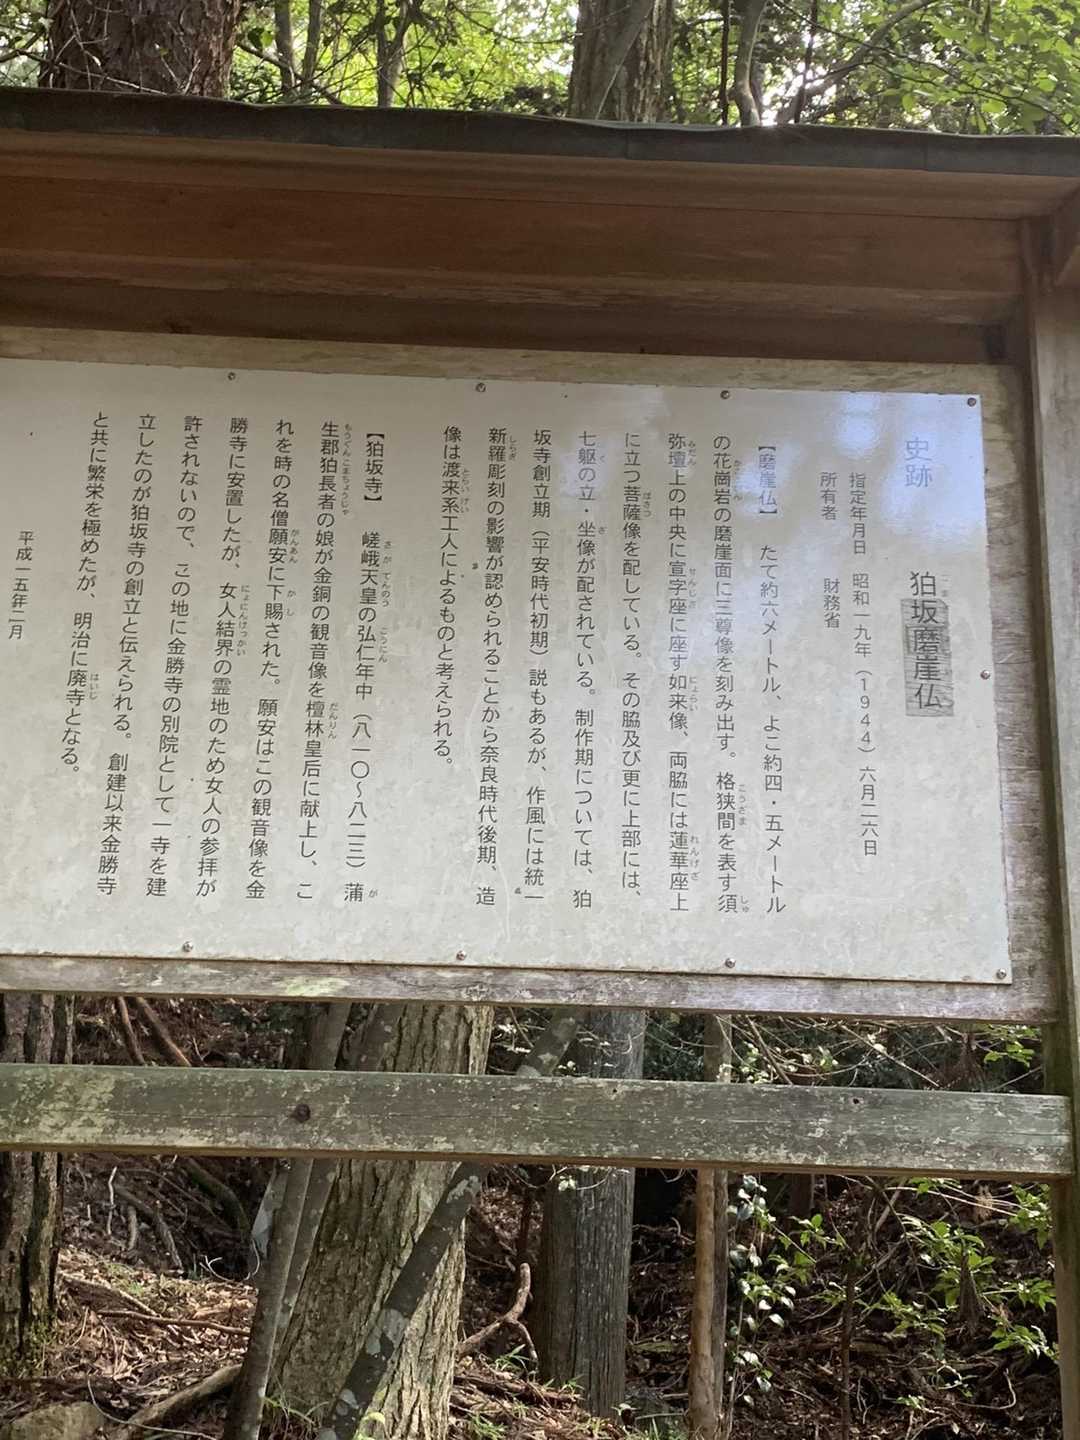 史跡
狛坂磨崖仏
指定年月日　昭和一九年（1944）六月二六日
所有者　　　財務省
【磨崖仏】　たて約六メートル、よこ約四・五メートル
の花崗岩の磨崖面に三尊像を刻み出す。格狭間を表す須
弥壇上の中央に宣字座に座す如来像、両脇には蓮華座上
に立つ菩薩像を配している。その脇及び更に上部には、
七躯の立・坐像が配されている。制作期については、狛
坂寺創立期（平安時代初期）説もあるが、作風には統一
新羅彫刻の影響が認められることから奈良時代後期、造
像は渡来系工人によるものと考えられる。
【狛坂寺】　嵯峨天皇の弘仁年中（八一〇〜八二三）蒲
生郡狛長者の娘が金銅の観音像を檀林皇后に献上し、こ
れを時の名僧願安に下賜された。願安はこの観音像を金
勝寺に安置したが、女人結界の霊地のため女人の参拝が
許されないので、この地に金勝寺の別院として一寺を建
立したのが狛坂寺の創立と伝えられる。創建以来金勝寺
と共に繁栄を極めたが、明治に廃寺となる。
平成一五年二月